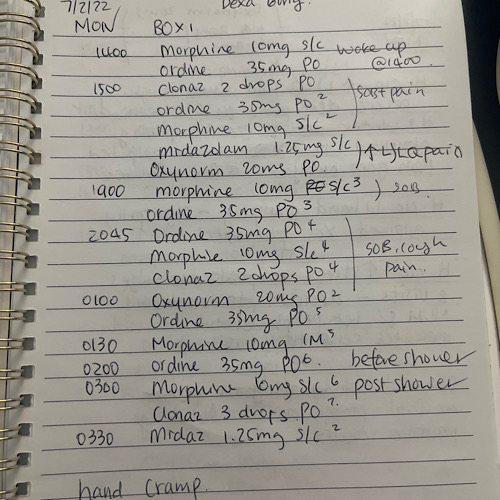 7/2/22 Dexa 6mg.
MON BOX 1
1400 Morphine 10mg s/c woke up
ordine 35mg PO @1400.
1500 clonaz 2 drops PO
ordine 35mg PO 2 SOB + pain
Morphine 10mg s/c 2
midazolam 1.25mg s/c ↑ pain
Oxynorm 20mg PO.
1900 morphine 10mg s/c 3 SOB
ordine 35mg PO 3
2045 Ordine 35mg PO 4
Morphine 10mg s/c 4 SOB, cough
Clonaz 2 drops PO 4 pain.
0100 Oxynorm 20mg PO 2
Ordine 35mg PO 5
0130 Morphine 10mg IM 5
0200 ordine 35mg PO 6. before shower
0300 Morphine 10mg s/c 6 post shower
Clonaz 3 drops PO 2.
0330 Midaz 1.25mg s/c 2
hand cramp.